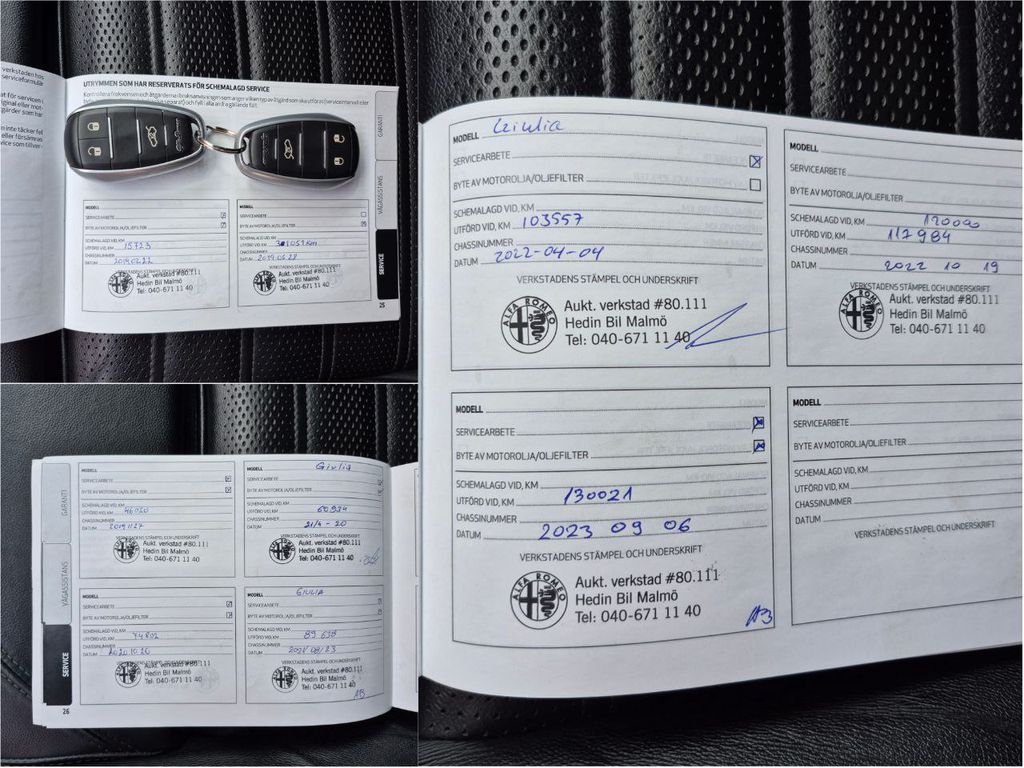 verkstaden hos
serviceformulär
UTRYMMEN SOM HAR RESERVERATS FÖR SCHEMALAGD SERVICE
GARANTI
VÄGASSISTANS
SERVICE
MODELL
SERVICEARBETE
BYTE AV MOTOROLJA/OLJEFILTER
SCHEMALAGD VID, KM
UTFÖRD VID, KM 15723
CHASSINUMMER
DATUM 20190222
Aukt. verkstad #80.111
Hedin Bil Malmö
Tel: 040-671 11 40
MODELL
SERVICEARBETE
BYTE AV MOTOROLJA/OLJEFILTER
SCHEMALAGD VID, KM
UTFÖRD VID, KM
CHASSINUMMER
DATUM 2019 06 28
Aukt. verkstad #80.111
Hedin Bil Malmö
Tel: 040-671 11 40
25
GARANTI
VÄGASSISTANS
SERVICE
MODELL
SERVICEARBETE
BYTE AV MOTOROLJA/OLJEFILTER
SCHEMALAGD VID, KM
UTFÖRD VID, KM 46020
CHASSINUMMER
DATUM 20191127
VERKSTADENS STÄMPEL OCH UNDERSKRIFT
Aukt. verkstad #80.111
Hedin Bil Malmö
Tel: 040-671 11 40
MODELL Giulia
SERVICEARBETE
BYTE AV MOTOROLJA/OLJEFILTER
SCHEMALAGD VID, KM
UTFÖRD VID, KM 60934
CHASSINUMMER
DATUM 21/4 - 20
VERKSTADENS STÄMPEL OCH UNDERSKRIFT
Aukt. verkstad #80.111
Hedin Bil Malmö
Tel: 040-671 11 40
MODELL
SERVICEARBETE
BYTE AV MOTOROLJA/OLJEFILTER
SCHEMALAGD VID, KM
UTFÖRD VID, KM 74802
CHASSINUMMER
DATUM 20201026
Aukt. verkstad #80.111
Hedin Bil Malmö
Tel: 040-671 11 40
MODELL GIULIA
SERVICEARBETE
BYTE AV MOTOROLJA/OLJEFILTER
SCHEMALAGD VID, KM
UTFÖRD VID, KM 89 638
CHASSINUMMER
DATUM 2021/08/23
VERKSTADENS STÄMPEL OCH UNDERSKRIFT
Aukt. verkstad #80.111
Hedin Bil Malmö
Tel: 040-671 11 40
AB
26
MODELL Giulia
SERVICEARBETE
BYTE AV MOTOROLJA/OLJEFILTER
SCHEMALAGD VID, KM
UTFÖRD VID, KM 103557
CHASSINUMMER
DATUM 2022-04-04
VERKSTADENS STÄMPEL OCH UNDERSKRIFT
ALFA ROMEO
Aukt. verkstad #80.111
Hedin Bil Malmö
Tel: 040-671 11 40
MODELL
SERVICEARBETE
BYTE AV MOTOROLJA/OLJEFILTER
SCHEMALAGD VID, KM 120000
UTFÖRD VID, KM 117984
CHASSINUMMER
DATUM 2022 10 19
VERKSTADENS STÄMPEL OCH UNDERSKRIFT
ALFA ROMEO
Aukt. verkstad #80.111
Hedin Bil Malmö
Tel: 040-671 11 40
MODELL
SERVICEARBETE
BYTE AV MOTOROLJA/OLJEFILTER
SCHEMALAGD VID, KM
UTFÖRD VID, KM 130021
CHASSINUMMER
DATUM 2023 09 06
VERKSTADENS STÄMPEL OCH UNDERSKRIFT
ALFA ROMEO
Aukt. verkstad #80.111
Hedin Bil Malmö
Tel: 040-671 11 40
AB
MODELL
SERVICEARBETE
BYTE AV MOTOROLJA/OLJEFILTER
SCHEMALAGD VID, KM
UTFÖRD VID, KM
CHASSINUMMER
DATUM
VERKSTADENS STÄMPEL OCH UNDERSKRIFT